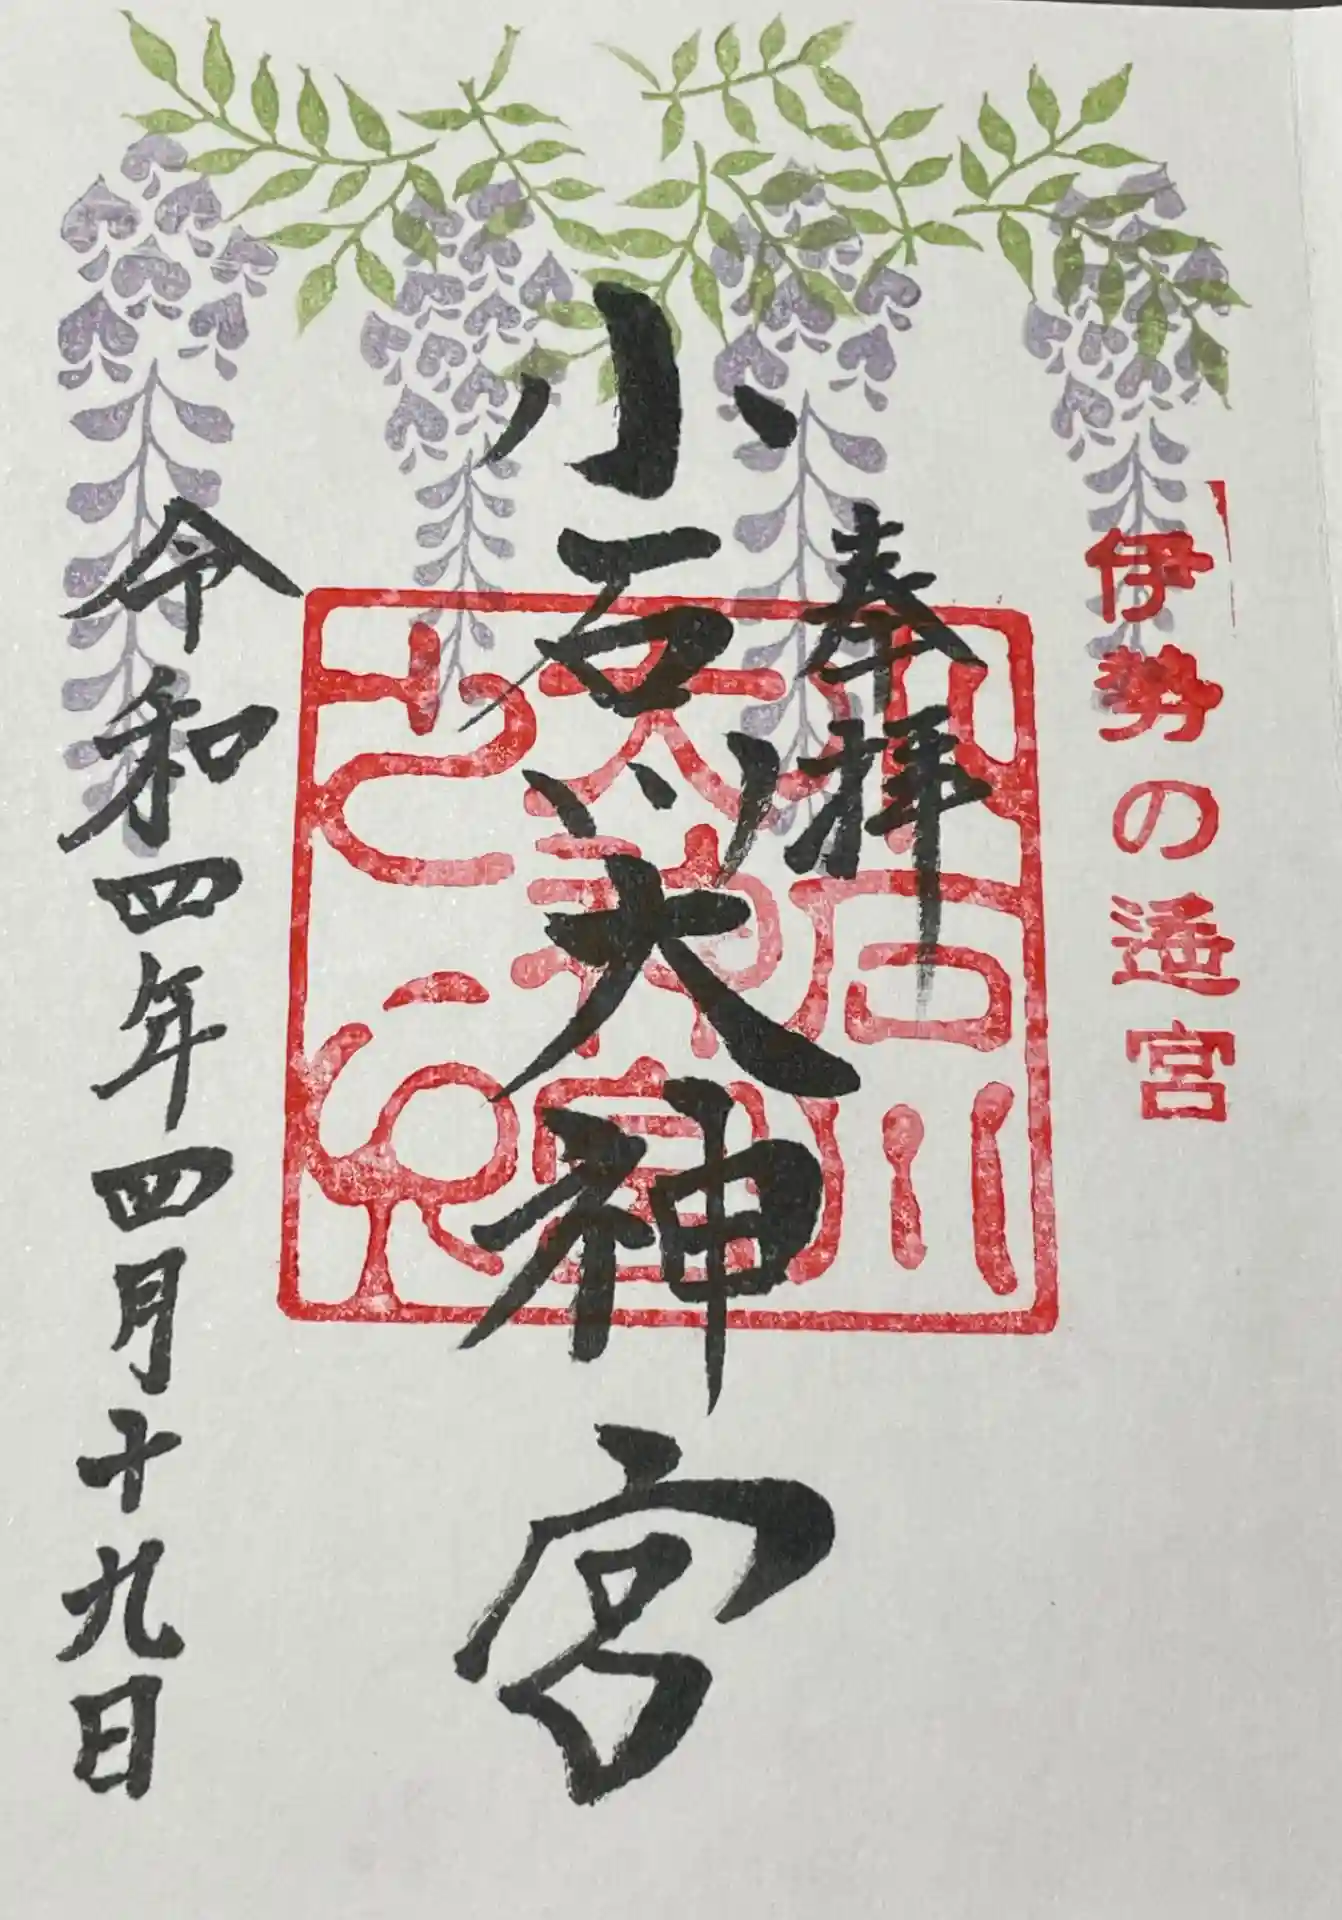 伊勢の遥宮
奉拝
小石川大神宮
令和四年四月十九日
小石川大神宮